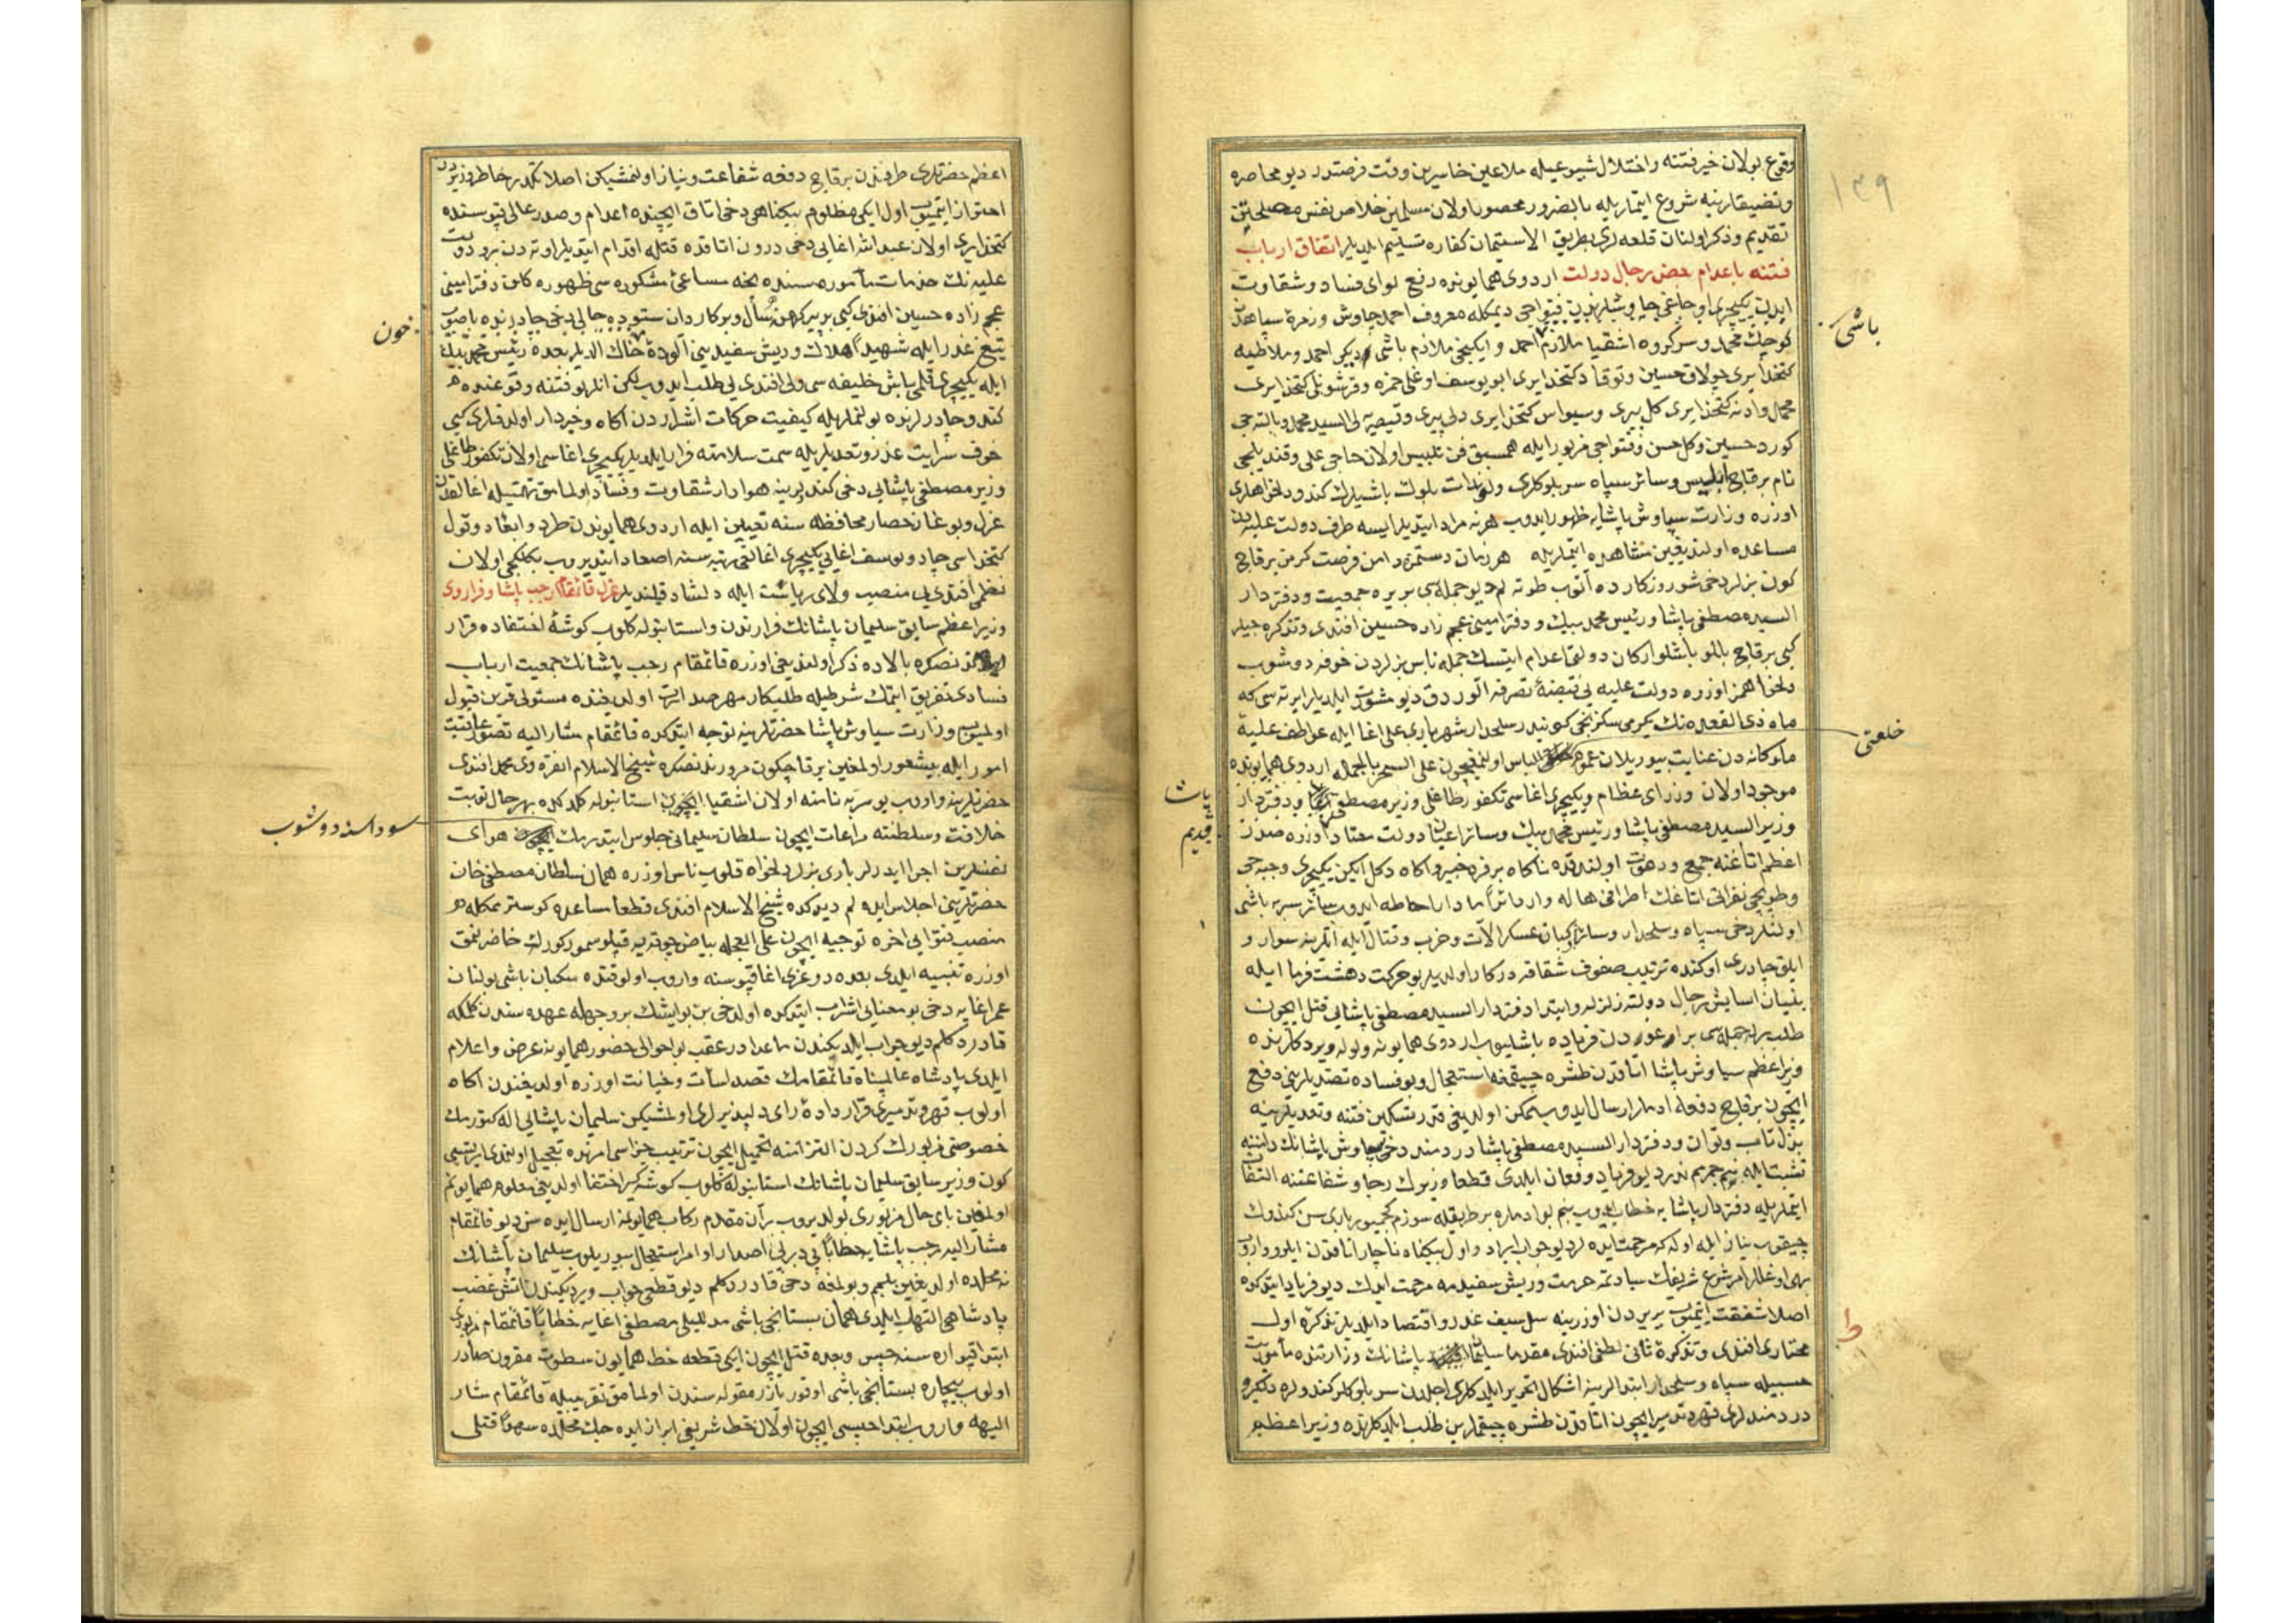 ١٣٩
وقوع بولان خبر فتنه و اختلال شیوعیله ملاعین خاسرین وقت فرصتدر دیو محاصره
وتضییقلرینه شروع ایتملریله بالضرور محصور اولان مسلمین خلاص نفس
تقدیم و ذکر اولنان قلعه لری بطریق الاستیمان کفاره تسلیم ایلدیلر اتفاق ارباب
فتنه باعدام بعض رجال دولت اردوی همایونده رفع لوای فساد و شقاوت
ایدن یکیچری اوجاغی چاوشلرندن فتواجی دیمکله معروف احمد چاوش و زمره سپاهدن
کوچك محمد و سرکروه اشقیا ملازم احمد و ایکنجی ملازم باشی دیکر احمد و ملاطیه
کتخدایری چولاق حسین و توقاد کتخدایری ابو یوسف اوغلی حمزه و قرشونلی کتخدایری
باشی
وادنه کتخدایری کل پیری و سیواس کتخدایری دلی پیری و قیصریه لی السید محمد و بالته جی
کورد حسین و کل حسن و فتواجی مزبور ایله همسبق فن تلبیس اولان حاجی علی و قندیلجی
نام برقاچ ابلیس و سائر سپاه سربلوکلری بلوك باشیلرك کندو دلخواهلری
اوزره وزارت سیاوش پاشایه ظهور ایدوب هر نه مراد ایتدیلر ایسه طرف دولت علیه دن
مساعده اولندیغین مشاهده ایتملریله هر زمان دستمزه دامن فرصت کرمز برقاچ
کون بزلر دخی شو روزکارده آتوب طوته لم دیو جمله سی بر یره جمعیت و دفتردار
السید مصطفی پاشا و رئیس محمد بیك و دفتر امینی عجم زاده حسین افندی و تذکره جیلر
کبی برقاچ باللو باشلو ارکان دولتی اعدام ایتسك جمله ناس بزلردن خوفه دوشوب
دلخواهمز اوزره دولت علیه یی قبضهٔ تصرفه آلوردق دیو مشورت ایلدیلر ایرته سی که
ماه ذی القعده نك یکرمی سکزنجی کونیدر سلحدار شهریاری علی اغا ایله عواطف علیهٔ
خلعتی
ملوکانه دن عنایت بیوریلان الباس اولنمقیچون علی السحر بالجمله اردوی همایونده
موجود اولان وزرای عظام و یکیچری اغاسی تکفور طاغلی وزیر مصطفی پاشا و دفتردار
وزیر السید مصطفی پاشا و رئیس محمد بیك و سائر اعیان دولت معتاد قدیم اوزره صدر
پاشا
قدیم
اعظم اتاغنه جمع و دعوت اولندقده ناکاه بر فرد خبیر و آکاه دکل ایکن یکیچری و جبه جی
وطوپجی نفراتی اتاغك اطرافنی هاله وار دائراً مادار احاطه ایدوب سائر سر به باشی
اولنلر دخی سپاه و سلحدار و سائر عسکر آلات و حرب و قتال ایله اتلرینه سوار و
ایلق چادری اوکنده ترتیب صفوف شقاقه درکار اولدیلر بو حرکت دهشت فرما ایله
بنیان آسایش رجال دولته زلزله و ابتدا دفتردار السید مصطفی پاشایی قتل ایچون
طلب جمله سی بر اوغوردن فریاده باشلیوب اردوی همایونه ولوله ویردکلرنده
وزیر اعظم سیاوش پاشا اتاقدن طشره چیقمغه استعجال و بو فساده تصدیلرینی دفع
ایچون برقاچ دفعه ادملر ارسال ایدوب ممکن اولدیغی قدر تسکین فتنه و تعدیلرینه
بذل تاب و توان و دفتردار السید مصطفی پاشا دردمند دخی سیاوش پاشانك دامننه
تشبث ایله بنم جرمم ندر دیو فریاد و فغان ایلدی قطعا وزیرك رجا و شفاعتنه التفات
ایتملریله دفتردار پاشایه خطاب ایدوب بنم بو ادملره بر طریقله سوزم کچمیور باری سن کندوك
چیقوب نیاز ایله اوله که مرحمت ایده لر دیو جواب ایراد و اول بیکناه ناچار اتاقدن ایلرو واروب
بهی اوغللر امر شرع شریفك سیادتمه حرمت و ریش سفیدمه مرحمت ایدك دیو فریاد ایتدکده
اصلا شفقت ایتمیوب یر یردن اوزرینه سل سیف غدر و اقتصاد ایلدیلر تذکرهٔ اول
مختاری افندی و تذکرهٔ ثانی لطفی افندی مقدما سلیمان پاشانك وزارتنده مأموریت
حسبیله سپاه و سلحدار ابتدالرینه اشکال تحریر ایلدکلری اجلدن سربلوکلر کندولره دخی
دردمندلری قهر و تدمیر ایچون اتاقدن طشره چیقملرین طلب ایلدکلرنده وزیر اعظم
اعظم حضرتلری طرفندن برقاچ دفعه شفاعت و نیاز اولنمشیکن اصلا تکدر خاطر وزیردن
احتراز ایتمیوب اول ایکی مظلوم بیکناهی دخی اتاق ایچنده اعدام و صدر عالی قپوسنده
کتخدایری اولان عبدالله اغایی دخی درون اتاقده قتله اقدام ایتدیلر اوته دن برو دولت
علیه نك خدمات مأموره سنده نجه مساعیٔ مشکوره سی ظهوره کلن دفتر امینی
عجم زاده حسین افندی کبی بر پیر کهن سال و بر کاردان ستوده حالی دخی چادرنده باصوب
خون
تیغ غدر ایله شهیداً اهلاك و ریش سفیدینی آلودهٔ خاك الدیلر بعده رئیس محمد بیك
ایله یکیچری قلمی باش خلیفه سی ولی افندی یی طلب ایدوب لکن انلر بو فتنه وقوعنده
کندو چادرلرنده بولنملریله کیفیت حرکات اشراردن آکاه و خبردار اولدقلری کبی
خوف سرایت غدر و تعدیلریله سمت سلامته فرار ایلدیلر یکیچری اغاسی اولان تکفور طاغلی
وزیر مصطفی پاشایی دخی کندیلرینه هوادار شقاوت و فساد اولمامق تهمتیله اغالقدن
عزل و بوغاز حصار محافظه سنه تعیین ایله اردوی همایوندن طرد و ابعاد و قول
کتخداسی چادو یوسف اغایی یکیچری اغالغی رتبه سنه اصعاد ایتدیروب بکلکجی اولان
نظمی افندی یی منصب والای ریاست ایله دلشاد قیلندیلر عزل قائمقام رجب پاشا و فرار وی
وزیر اعظم سابق سلیمان پاشانك فرارندن و استانبوله کلوب کوشهٔ اختفاده قرار
ایتدکدنصکره بالاده ذکر اولندیغی اوزره قائمقام رجب پاشانك جمعیت ارباب
فسادی تفریق ایتمك شرطیله طلبکار مهر صدارت اولدیغنده مسئولی قرین قبول
اولمیوب وزارت سیاوش پاشا حضرتلرینه توجه ایتدکده قائمقام مشار الیه تصور عاقبت
امور ایله بیشعور اولمغین برقاچ کون مرورندنصکره شیخ الاسلام انقره وی محمد افندی
حضرتلرینه واروب بو مرتبه نامنه اولان اشقیا ایچون استانبوله کلدکده بهر حال نوبت
خلافت و سلطنته مراعات ایچون سلطان سلیمانی جلوس ایتدرمك سوداسنه دوشوب هوای
سوداسنه دوشوب
نفسلرین اجرا ایدرلر باری بزلر دلخواه قلوب ناس اوزره همان سلطان مصطفی خان
حضرتلرینی اجلاس ایده لم دیدکده شیخ الاسلام افندی قطعا مساعده کوسترمکله
منصب فتوایی اخره توجیه ایچون علی العجله بیاض چوقه یه قپلو سمور کورك حاضر اولمق
اوزره تنبیه ایلدی بعده دوغری اغا قپوسنه واروب اولوقتده سکبان باشی بولنان
عمر اغایه دخی بو معنایی اشراب ایتدکده اولدخی بن بو ایشك بر وجهله عهده سندن کلمکه
قادر دکلم دیو جواب ایلدیکندن ماعدا در عقب بو احوالی حضور همایونه عرض و اعلام
ایلدی پادشاه عالمپناه قائمقامك قصد اسائت و خیانت اوزره اولدیغندن آکاه
اولوب قهر و تدمیری قرار دادهٔ رای دلپذیرلری اولمشیکن سلیمان پاشایی اله کتورمك
خصوصنی مزبورك کردن التزامنه تحمیل ایچون ترتیب جزاسی امرنده تعجیل اولنمدی ایرتسی
کون وزیر سابق سلیمان پاشانك استانبوله کلوب کوشه کیر اختفا اولدیغی معلوم همایونم
اولمغین بای حال مزبوری بولدیروب بر آن مقدم رکاب همایونمه ارسال ایده سن دیو قائمقام
مشار الیه رجب پاشایه خطاباً پی در پی اصدار اوامر استعجال بیوریلوب سلیمان پاشانك
نه محلده اولدیغین بیلمم و بولمغه دخی قادر دکلم دیو قطعی جواب ویردیکندن آتش غضب
پادشاهی التهاب ایلدی همان بستانجی باشی مدللیلی مصطفی اغایه خطاباً قائمقام مزبوری
ابتدا قپو اره سنه حبس و بعده قتل ایچون ایکی قطعه خط همایون سطوت مقرون صادر
اولوب بیچاره بستانجی باشی اوقور یازر مقوله سندن اولمامق تقریبیله قائمقام مشار
الیهه واروب ابتدا حبسی ایچون اولان خط شریفی ابراز ایده جك محلده سهواً قتلی